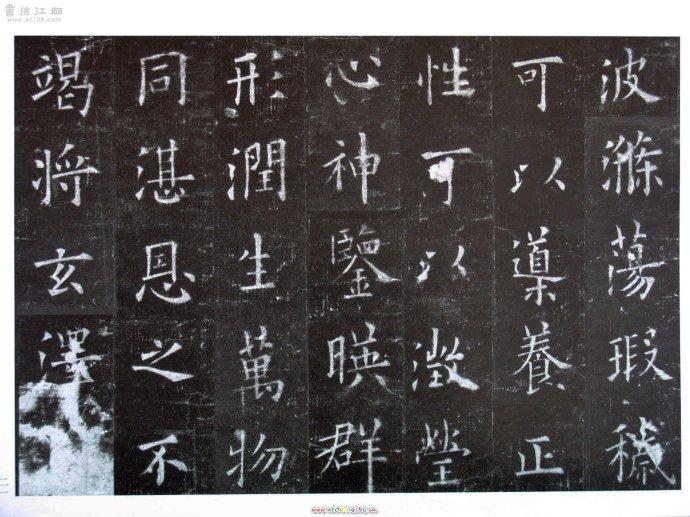 書法江湖
www.sf108.com
波滌蕩瑕穢
可以導養正
性可以澂瑩
心神鑒暎群
形潤生萬物
同湛恩之不
竭将玄澤